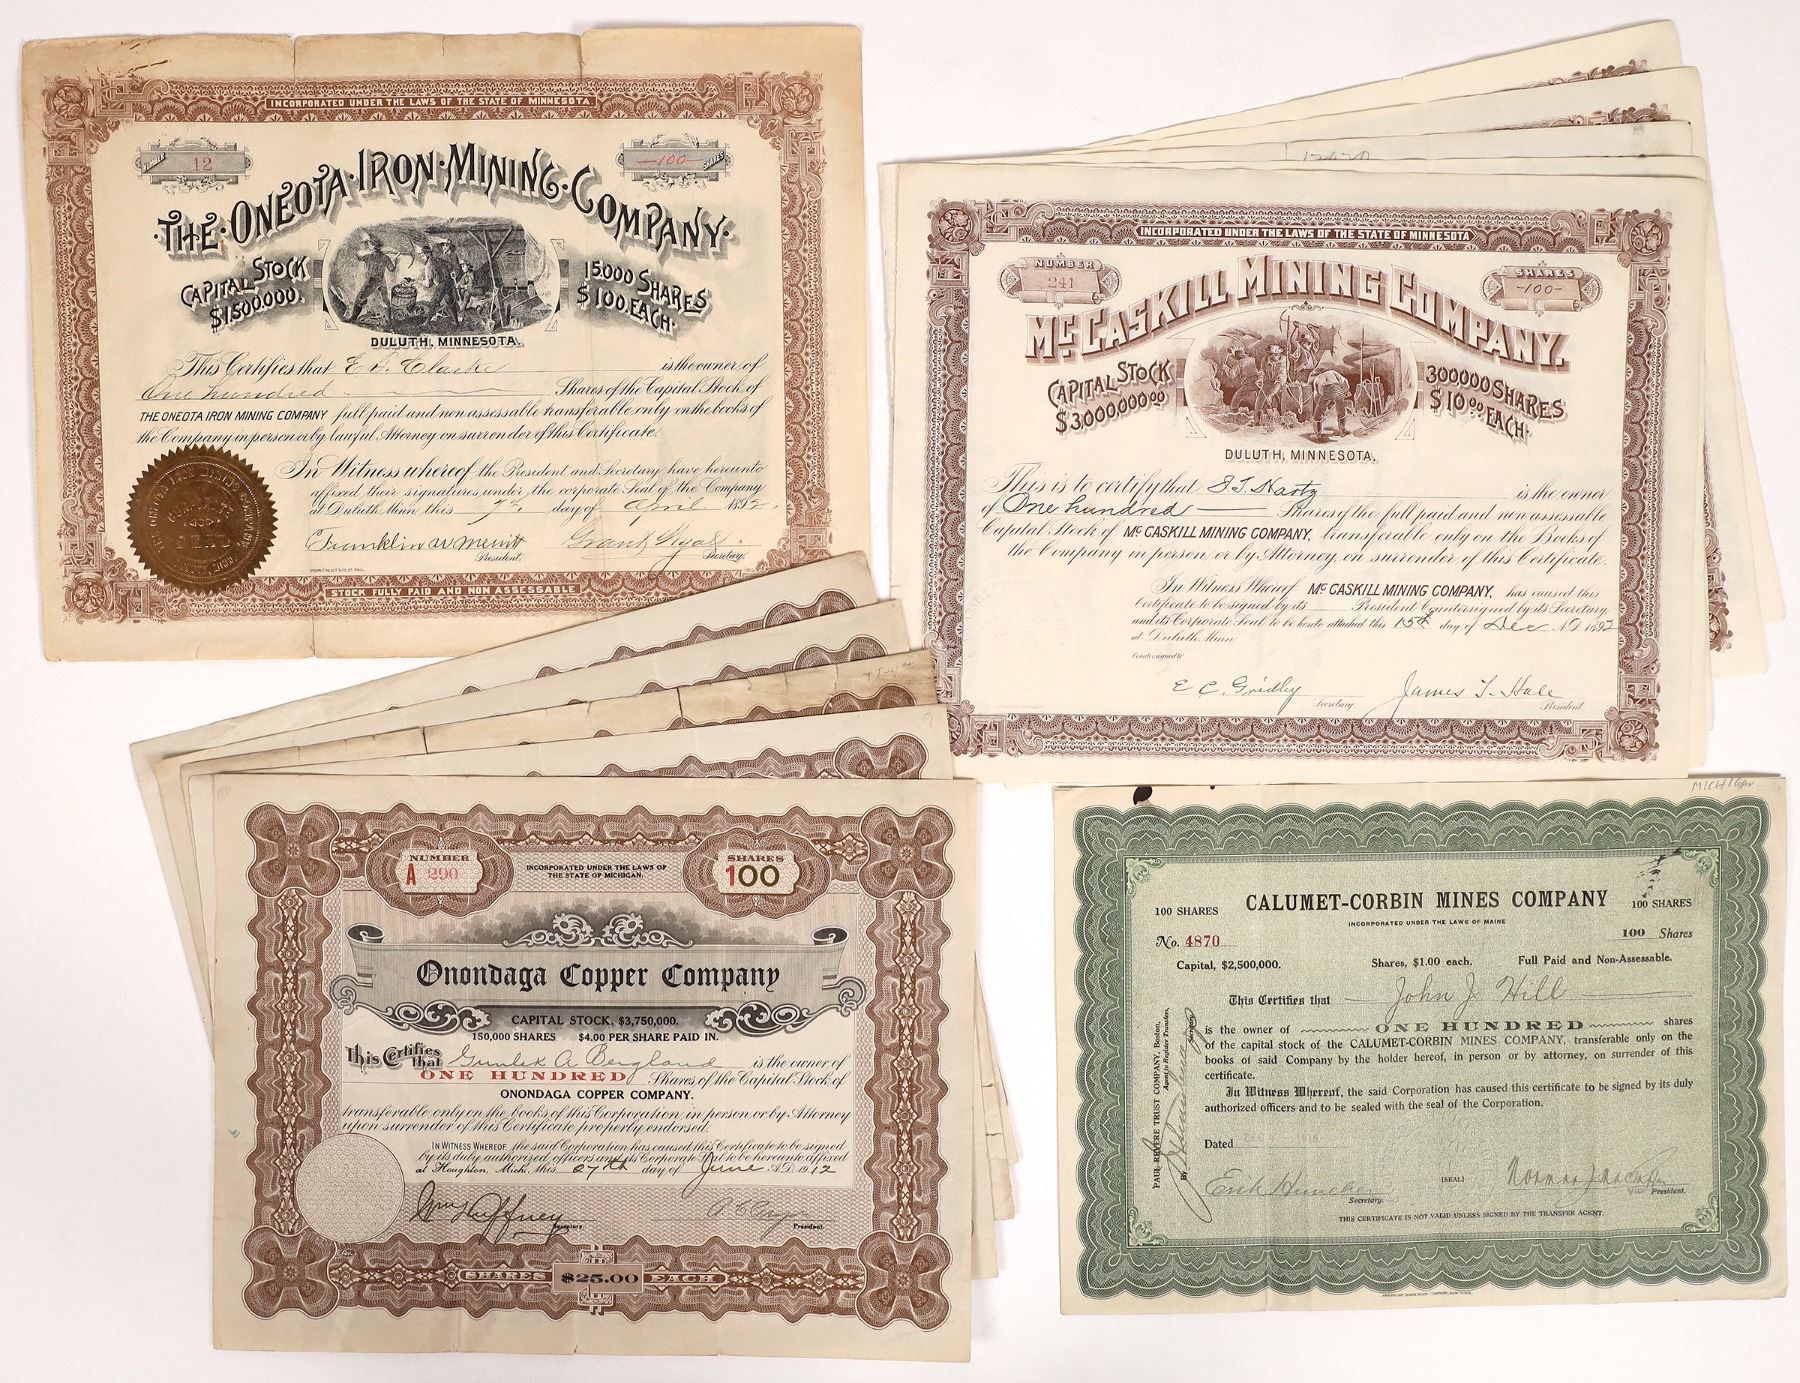 INCORPORATED UNDER THE LAWS OF THE STATE OF MINNESOTA
NUMBER 12
—100— SHARES
·THE·ONEOTA·IRON·MINING·COMPANY·
CAPITAL STOCK
$1,500,000.
15000 SHARES
$100. EACH.
DULUTH, MINNESOTA.
This Certifies that E. Clarke is the owner of
One hundred Shares of the Capital Stock of
THE ONEOTA IRON MINING COMPANY full paid and non assessable transferable only on the books of
the Company in person or by lawful Attorney on surrender of this Certificate.
In Witness whereof the President and Secretary have hereunto
affixed their signatures under the corporate Seal of the Company
at Duluth Minn this 7th day of April 1892.
Franklin W Merritt
President. Secretary.
STOCK FULLY PAID AND NON ASSESSABLE
INCORPORATED UNDER THE LAWS OF THE STATE OF MINNESOTA
NUMBER
241
SHARES
-100-
McCASKILL MINING COMPANY.
CAPITAL STOCK
$3,000,000.00
300000 SHARES
$10.00 EACH.
DULUTH, MINNESOTA.
This is to certify that is the owner
of One hundred Shares of the full paid and non assessable
Capital Stock of McCASKILL MINING COMPANY, transferable only on the Books of
the Company in person or by Attorney on surrender of this Certificate.
In Witness Whereof McCASKILL MINING COMPANY, has caused this
Certificate to be signed by its President Countersigned by its Secretary,
and its Corporate Seal to be hereto attached this 15th day of Dec A.D. 1892
at Duluth Minn.
E C. Gridley James T. Hale
Secretary. President
NUMBER
A 290
INCORPORATED UNDER THE LAWS OF
THE STATE OF MICHIGAN.
SHARES
100
Onondaga Copper Company
CAPITAL STOCK, $3,750,000.
150,000 SHARES $4.00 PER SHARE PAID IN.
This Certifies that A Bergland is the owner of
ONE HUNDRED Shares of the Capital Stock of
ONONDAGA COPPER COMPANY.
transferable only on the books of this Corporation in person or by Attorney
upon surrender of this Certificate properly endorsed.
IN WITNESS WHEREOF, the said Corporation has caused this Certificate to be signed
by its duly authorized officers and its Corporate Seal to be hereunto affixed
at Houghton, Mich. this 27th day of June A.D. 1912
Secretary President.
SHARES $25.00 EACH
MICHIGAN
CALUMET-CORBIN MINES COMPANY
100 SHARES 100 SHARES
INCORPORATED UNDER THE LAWS OF MAINE
No. 4870 100 Shares
Capital, $2,500,000. Shares, $1.00 each. Full Paid and Non-Assessable.
This Certifies that John J Hill
is the owner of ONE HUNDRED shares
of the capital stock of the CALUMET-CORBIN MINES COMPANY, transferable only on the
books of said Company by the holder hereof, in person or by attorney, on surrender of this
certificate.
In Witness Whereof, the said Corporation has caused this certificate to be signed by its duly
authorized officers and to be sealed with the seal of the Corporation.
Dated
Secretary. [SEAL] Vice President.
THIS CERTIFICATE IS NOT VALID UNLESS SIGNED BY THE TRANSFER AGENT.
PAUL REVERE TRUST COMPANY, Boston,
Agent to Register Transfers,
By Secretary.
AMERICAN BANK NOTE COMPANY, NEW YORK.